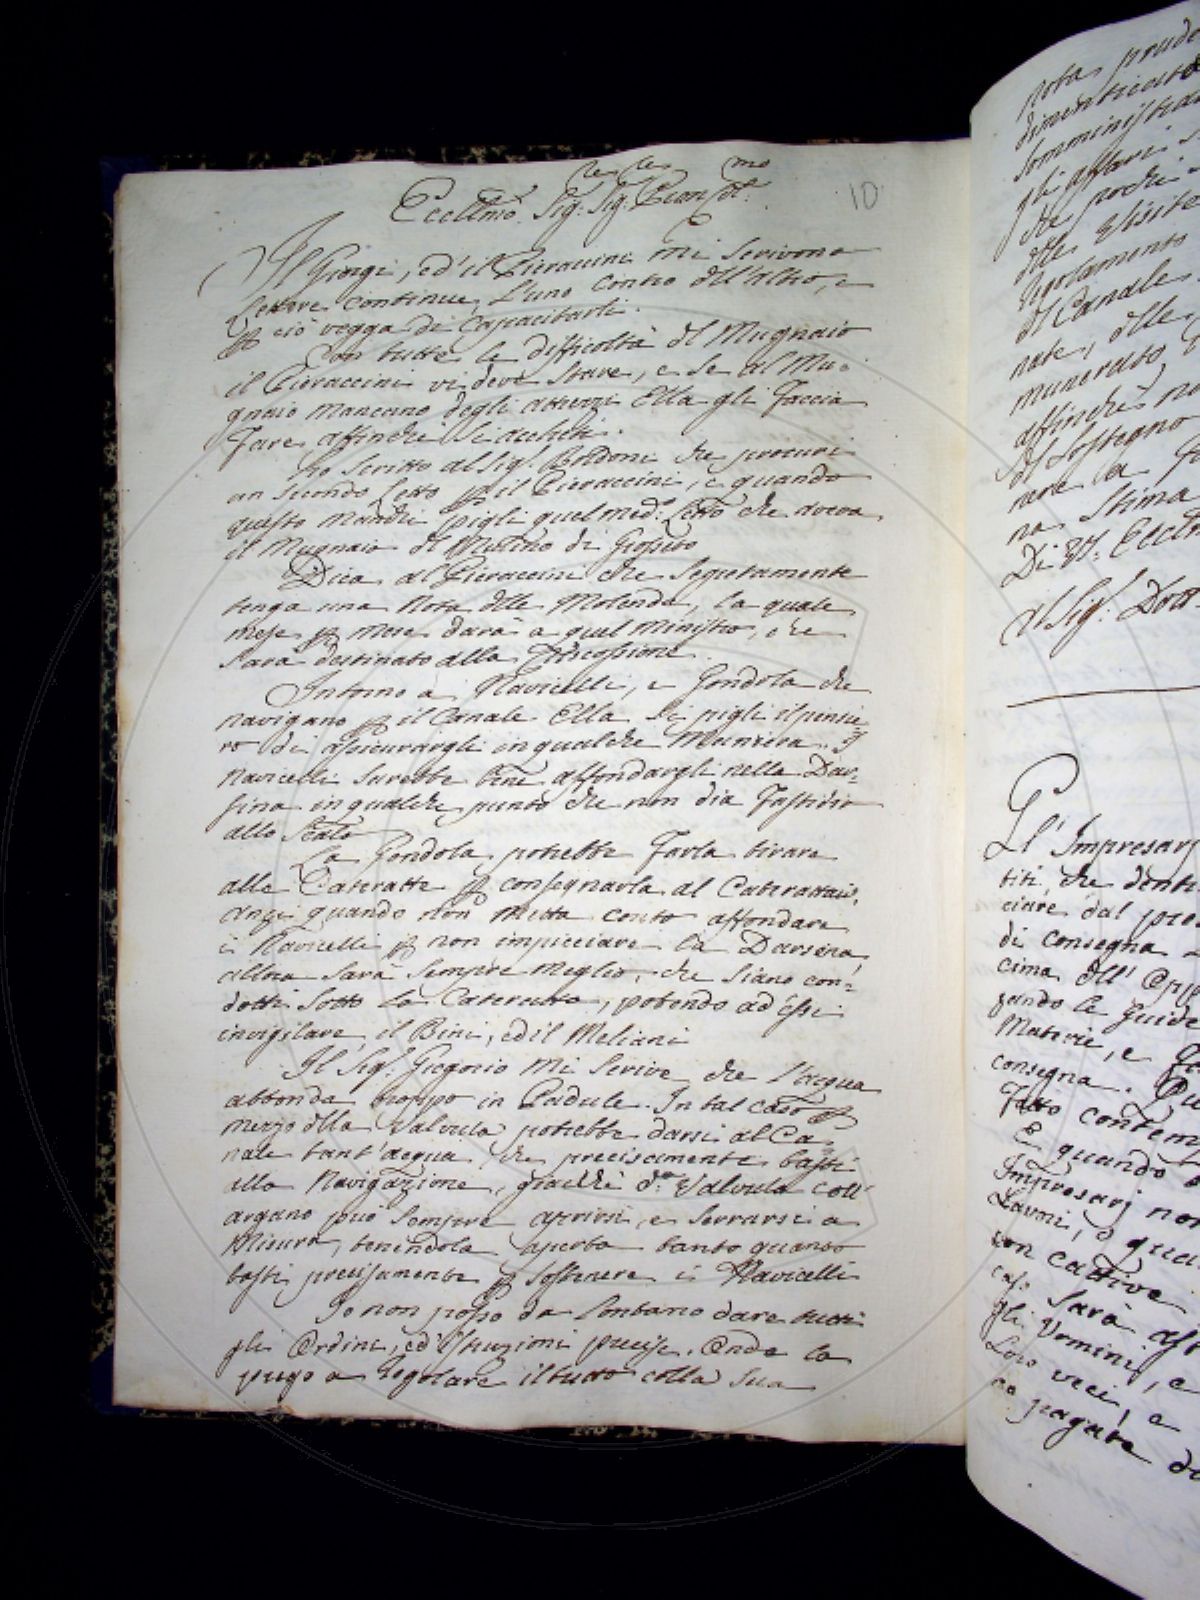 10
Eccell.mo Sig.re Sig.
Il Giorgi, ed' il Pieraccini mi scrivono
Lettere continue, l'uno contro dell'altro, e
p ciò vegga di Capacitarli.
Con tutte le difficoltà del Mugnaio
il Pieraccini vi deve stare, e se al Mu-
gnaio mancano degli attrezzi Ella gli faccia
fare, affinché si acchieti.
Ho scritto al Sig.r Boldoni che procuri
un secondo Letto p il Pieraccini, e quando
questo mandi pigli quel med.o Letto che aveva
il Mugnaio del Mulino di Grosseto
Dica al Pieraccini che segretamente
tenga una Nota delle Molende, la quale
mese p mese darà a quel Ministro, che
sarà destinato alla Riscossione.
Intorno a' Navicelli, e Gondola che
navigano p il Canale Ella si pigli il pensie-
ro di assicurargli in qualche maniera. I
Navicelli sarebbe bene affondargli nella Dar-
sina in qualche punto che non dia fastidio
allo Scalo
La Gondola potrebbe farla tirare
alle Cateratte p consegnarla al Caterattaio,
anzi quando non metta conto affondare
i Navicelli p non impicciare la Darsena,
allora sarà sempre meglio, che siano con-
dotti sotto la Cateratta, potendo ad essi
invigilare il Bini, ed il Meliani
Il Sig.r Gregorio mi scrive che l'acqua
abbonda troppo in Padule. In tal caso p
mezzo della Valvula potrebbe darsi al Ca-
nale tant'acqua che precisamente basti
alla Navigazione, giacchè d.a Valvula coll'
argano può sempre aprirsi, e serrarsi a
misura, tenendola aperta tanto quanto
basti precisamente p sostenere i Navicelli
Io non posso da lontano dare tutti
gli Ordini, ed' Istruzioni precise. Onde la
prego a regolare il tutto colla sua
Nota prude
dimenticato
somministra
gli affari
che pochi
delle Visite
regolamento
del Canale
nate, delle
munerato
affinchè
del sostegno
nere a
na stima
Di V.S. Eccell
Al Sig.r Dott
Gl' Impresarj
titi, che
ciare dal
di consegna
cima dell'
zando le guide
Materie, e
consegna.
Fatto
E quando
Impresarj non
Lavori, o
con cattive
caso sarà
gli Uomini, e
Loro veci, e
pagare